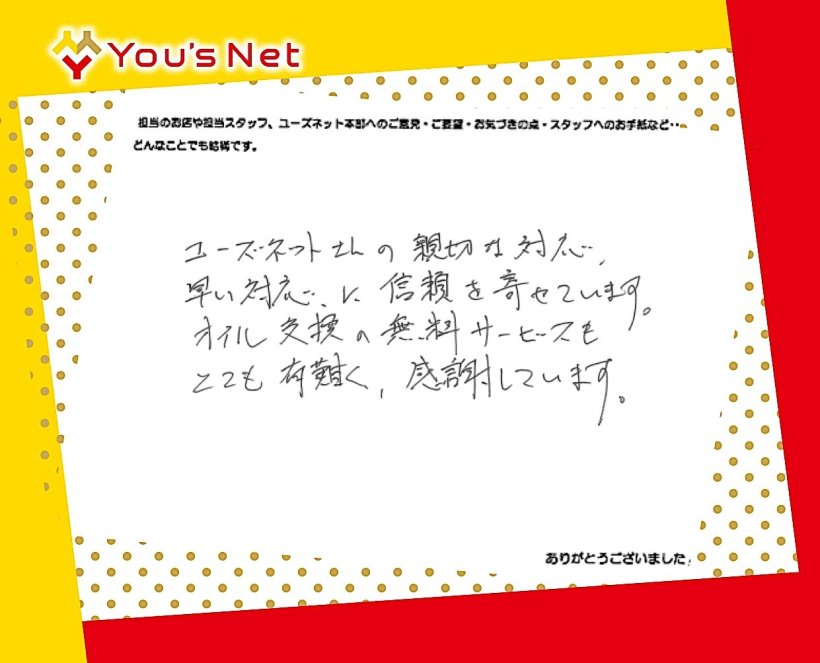 You's Net
担当のお店や担当スタッフ、ユーズネット本部へのご意見・ご要望・お気づきの点・スタッフへのお手紙など・・
どんなことでも結構です。
ユーズネットさんの親切な対応、
早い対応、に信頼を寄せています。
オイル交換の無料サービスも
とても有難く、感謝しています。
ありがとうございました